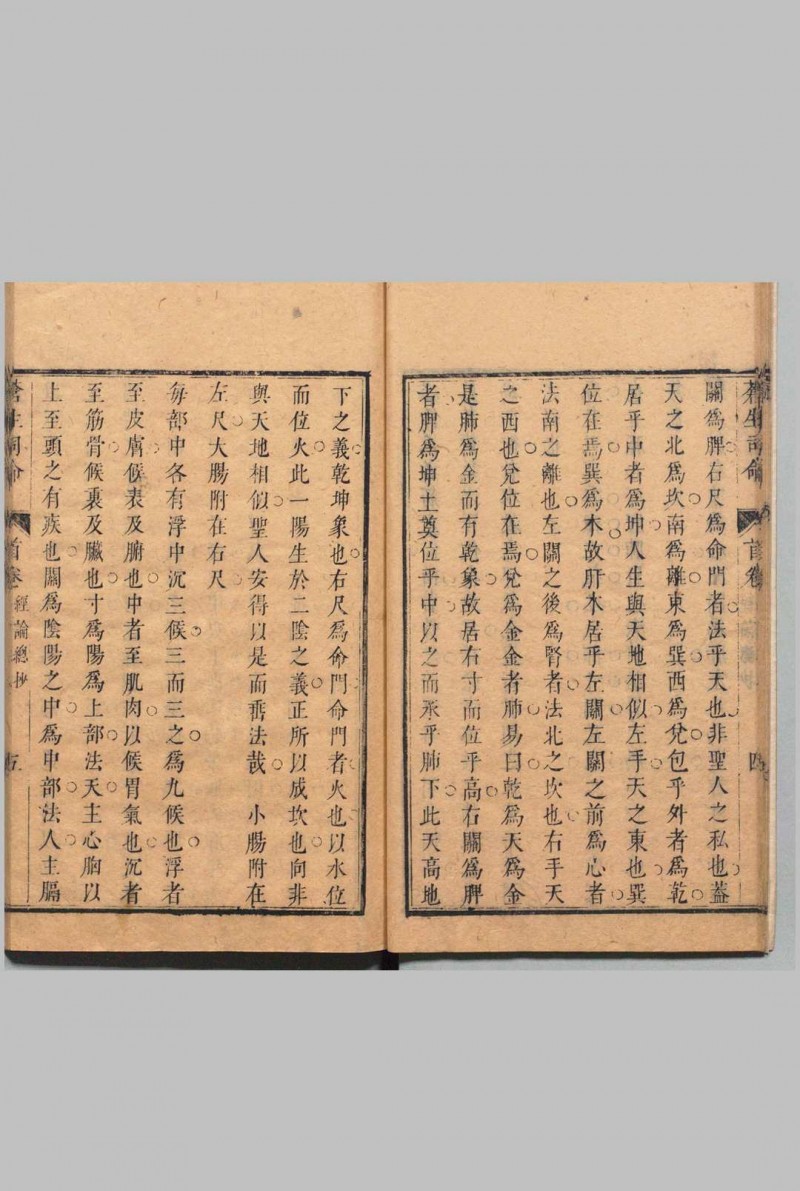 蒼生司命 首卷 四
關為脾右尺為命門者法乎天也非聖人之私也蓋
天之北為坎南為離東為巽西為兌包乎外者為乾
居乎中者為坤人生與天地相似左手天之東也巽
位在焉巽為木故肝木居乎左關左關之前為心者
法南之離也左關之後為腎者法北之坎也右手天
之西也兌位在焉兌為金金者肺易曰乾為天為金
是肺為金而有乾象故居右寸而位乎高右關為脾
者脾為坤土奠位乎中以之而承乎肺下此天高地
下之義乾坤象也右尺為命門命門者火也以水位
而位火此一陽生於二陰之義正所以成坎也向非
與天地相似聖人安得以是而垂法哉 小腸附在
左尺大腸附在右尺
每部中各有浮中沉三候三而三之為九候也浮者
至皮膚候表及腑也中者至肌肉以候胃氣也沉者
至筋骨候裏及臟也寸為陽為上部法天主心胸以
上至頭之有疾也關為陰陽之中為中部法人主膈
蒼生司命 首卷 經論總抄 五